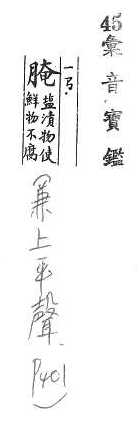 45彙音寶鑑
腌
鹽漬物使
鮮物不腐
(兼上平聲. P401)